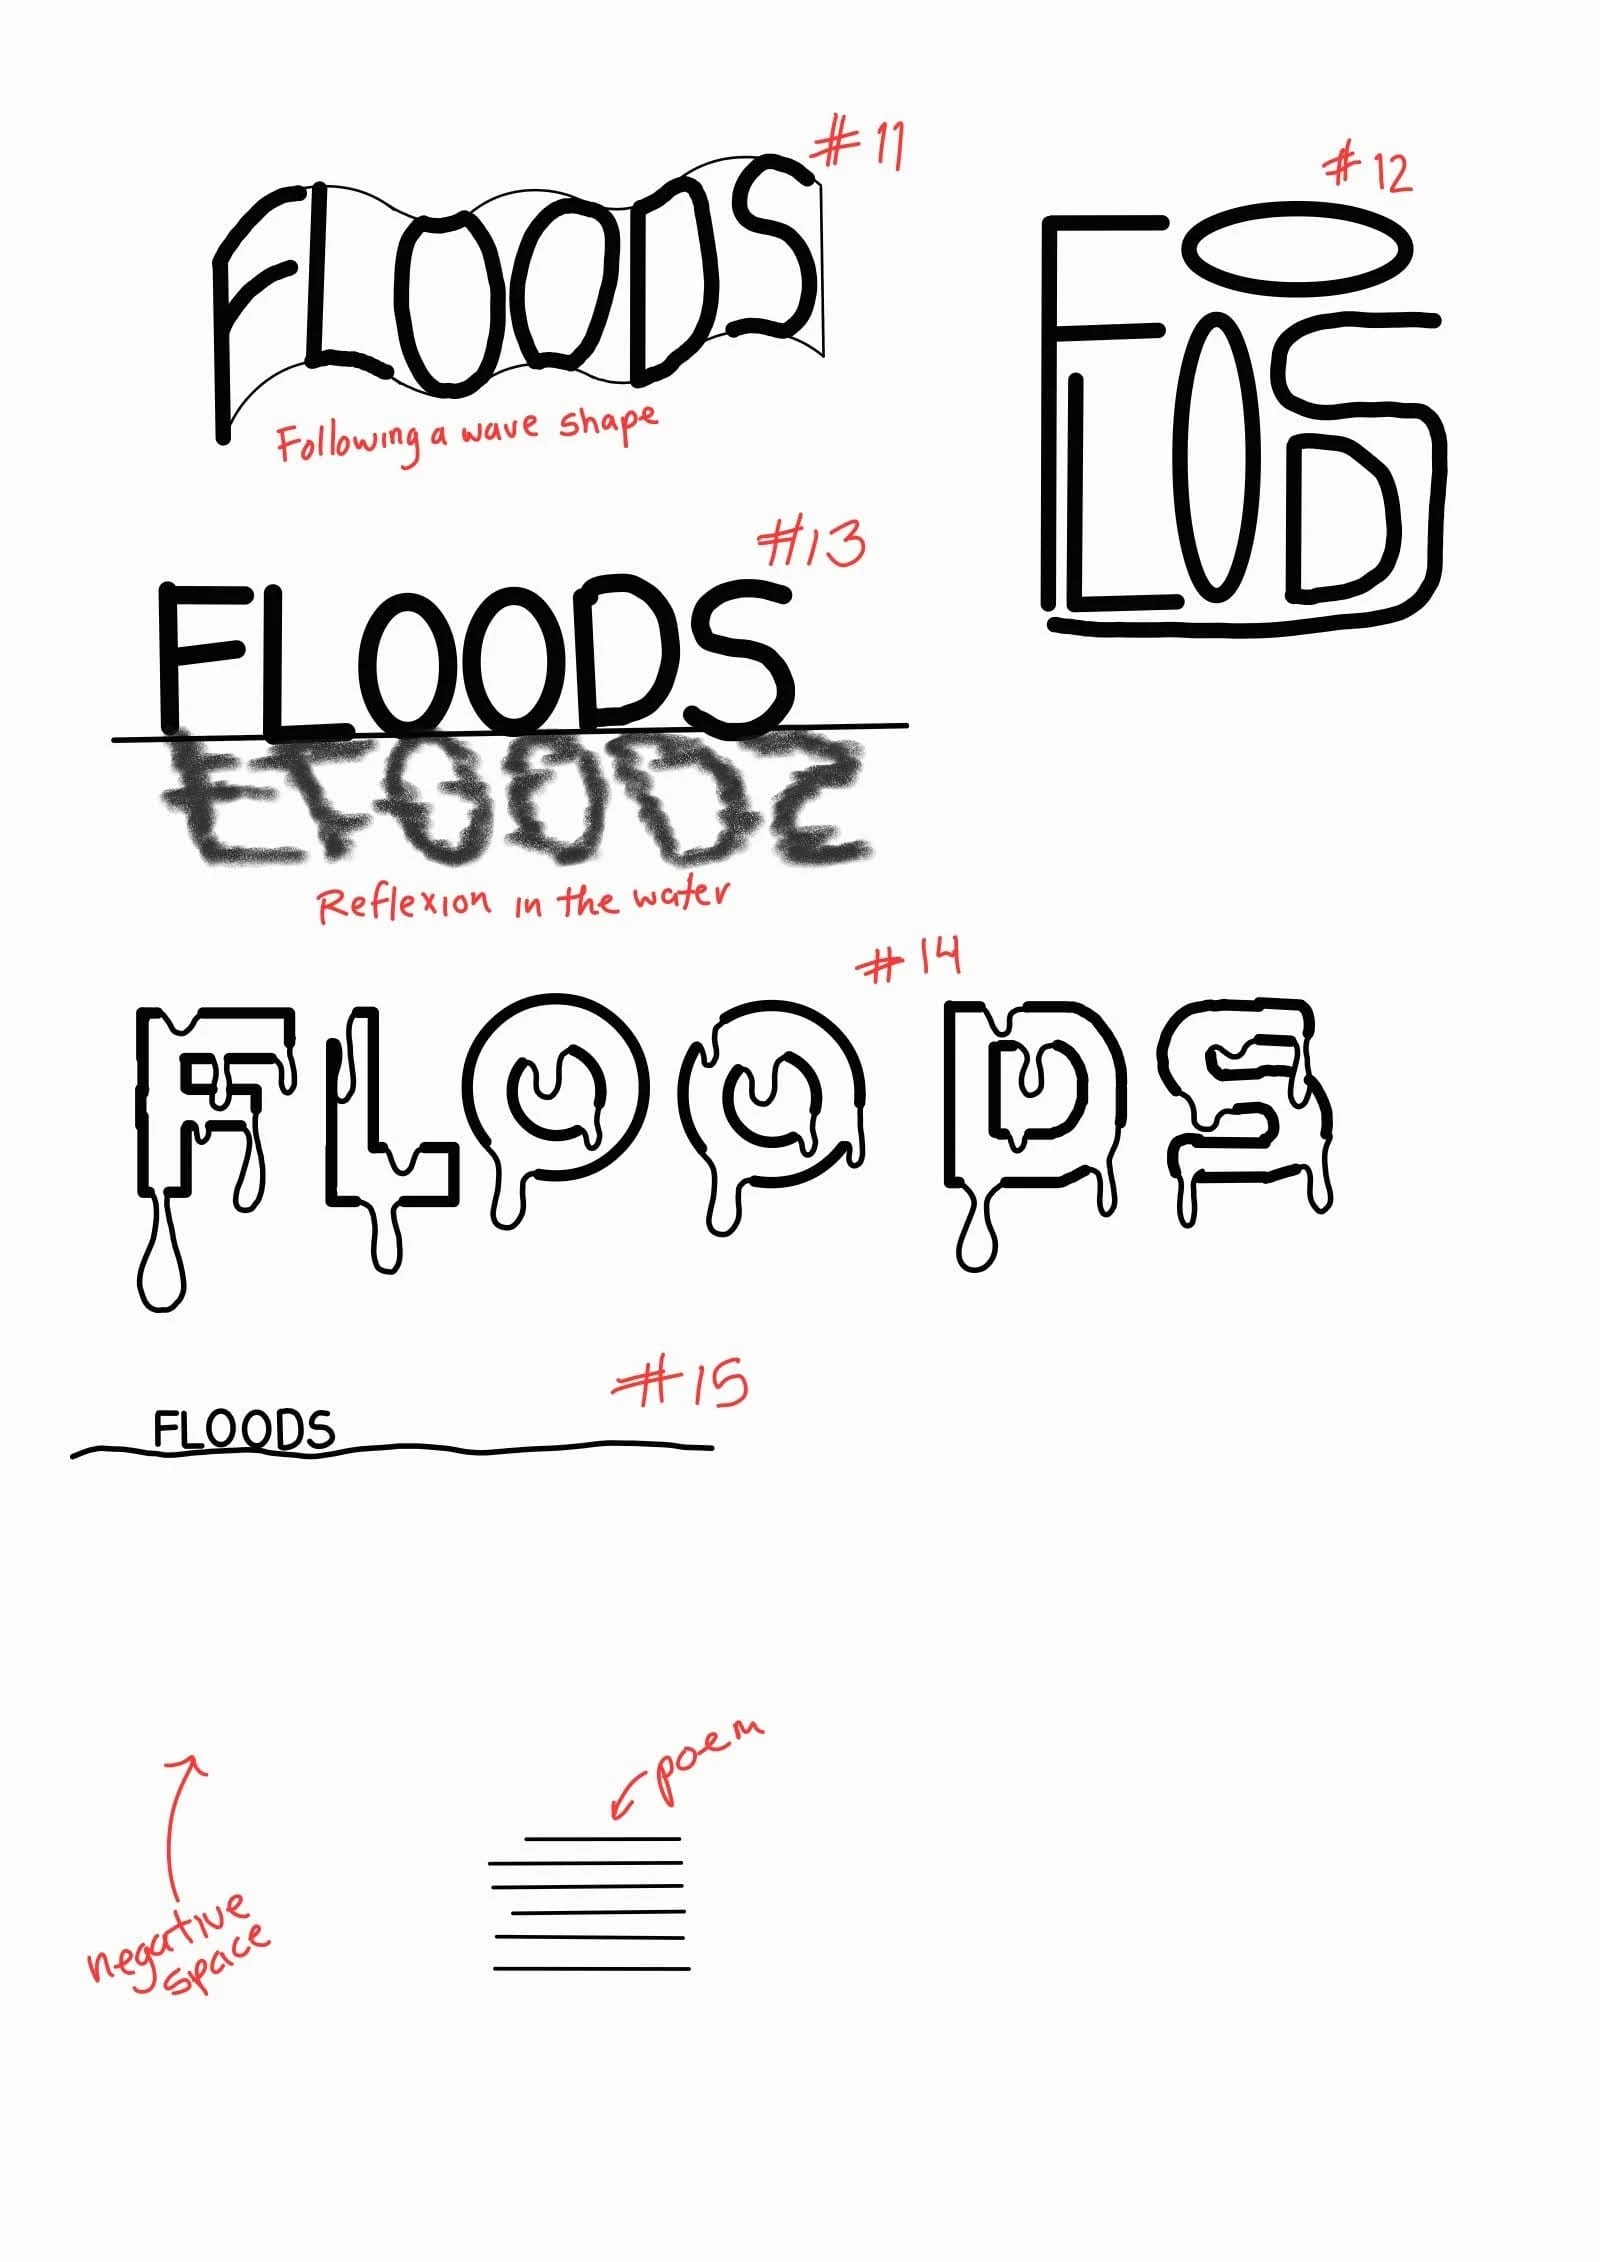 #11
FLOODS
Following a wave shape
#12
FLOODS
#13
FLOODS
FLOODS
Reflexion in the water
#14
FLOODS
#15
FLOODS
poem
negative
space